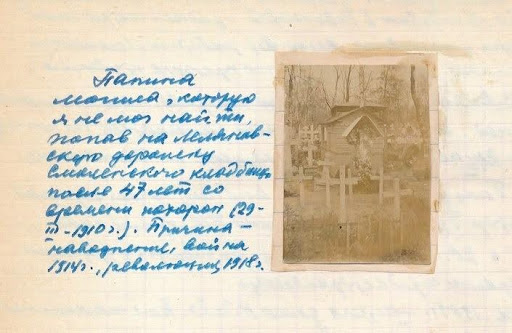 Папина
могила, которую
я не мог найти,
попав на
скую дорожку
Смоленского кладбища
после 47 лет со
времени похорон (29-
III-1910г.). Причина -
наводнение, война
1914г., революция 1918г.